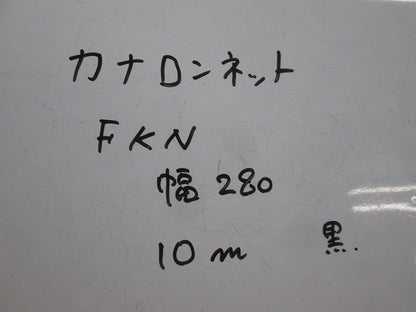 カナロンネット
FKN
幅 280
10m 黒